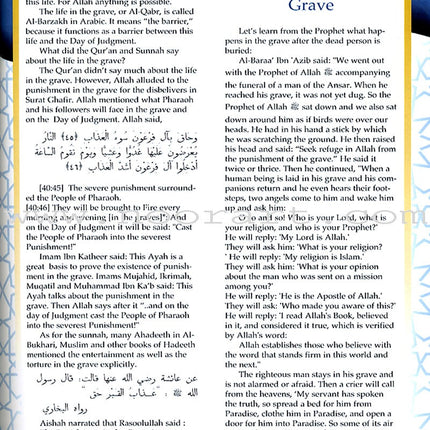 this life. For Allah anything is possible.
The life in the grave, or Al-Qabr, is called
Al-Barzakh in Arabic. It means "the barrier,"
because it functions as a barrier between this
life and the Day of Judgment.
What did the Qur'an and Sunnah say
about the life in the grave?
The Qur'an didn't say much about the life
in the grave. However, Allah alluded to the
punishment in the grave for the disbelivers in
Surat Ghafir. Allah mentioned what Pharaoh
and his followers will face in the grave and
on the Day of Judgment. Allah said,
وَحَاقَ بِآلِ فِرْعَوْنَ سُوءُ الْعَذَابِ (٤٥) النَّارُ
يُعْرَضُونَ عَلَيْهَا غُدُوًّا وَعَشِيًّا وَيَوْمَ تَقُومُ السَّاعَةُ
أَدْخِلُوا آلَ فِرْعَوْنَ أَشَدَّ الْعَذَابِ (٤٦)
[40:45] The severe punishment surround-
ed the People of Pharaoh.
[40:46] They will be brought to Fire every
morning and evening [in the grass]? And
on the Day of Judgment it will be said: "Cast
the People of Pharaoh into the severest
Punishment!"
Imam Ibn Katheer said: This Ayah is a
great basis to prove the existence of punish-
ment in the grave. Imams Mujahid, Ikrimah,
Muqatil and Muhammad Ibn Ka'b said: This
Ayah talks about the punishment in the
grave. Then Allah says after it "..and on the
day of Judgment cast the People of Pharaoh
into the severest Punishment!"
As for the sunnah, many Ahadeeth in Al-
Bukhari, Muslim and other books of Hadeeth
mentioned the entertainment as well as the
torture in the grave explicitly.
عن عائشة رضي الله عنها قالت: قال رسول
الله ﷺ : " عــذابُ القـبْـرِ حق "
رواه البخاري
Aishah narrated that Rasoolullah said :
Grave
Let's learn from the Prophet what hap-
pens in the grave after the dead person is
buried:
Al-Baraa' Ibn 'Azib said: "We went out
with the Prophet of Allah ﷺ accompanying
the funeral of a man of the Ansar. When he
reached his grave, it was not yet dug. So the
Prophet of Allah ﷺ sat down and we also sat
down around him as if birds were over our
heads. He had in his hand a stick by which
he was scratching the ground. He then raised
his head and said: "Seek refuge in Allah from
the punishment of the grave." He said it
twice or thrice. Then he continued, "When a
human being is laid in his grave and his com-
panions return and he even hears their foot-
steps, two angels come to him and wake him
up and ask him:
'O so and so! Who is your Lord, what is
your religion, and who is your Prophet?'
He will reply: 'My Lord is Allah.'
They will ask him: 'What is your religion?
' He will reply: 'My religion is Islam.'
They will ask him: 'What is your opinion
about the man who was sent on a mission
among you?'
He will reply: 'He is the Apostle of Allah.'
They will ask: 'Who made you aware of this?'
He will reply: 'I read Allah's Book, believed
in it, and considered it true, which is verified
by Allah's word:
Allah establishes those who believe with
the word that stands firm in this world and
the next."
The righteous man stays in his grave and
is not alarmed or afraid. Then a crier will call
from the heavens, 'My servant has spoken
the truth, so spread a bed for him from
Paradise, clothe him in Paradise, and open a
door for him into Paradise. So some of its air